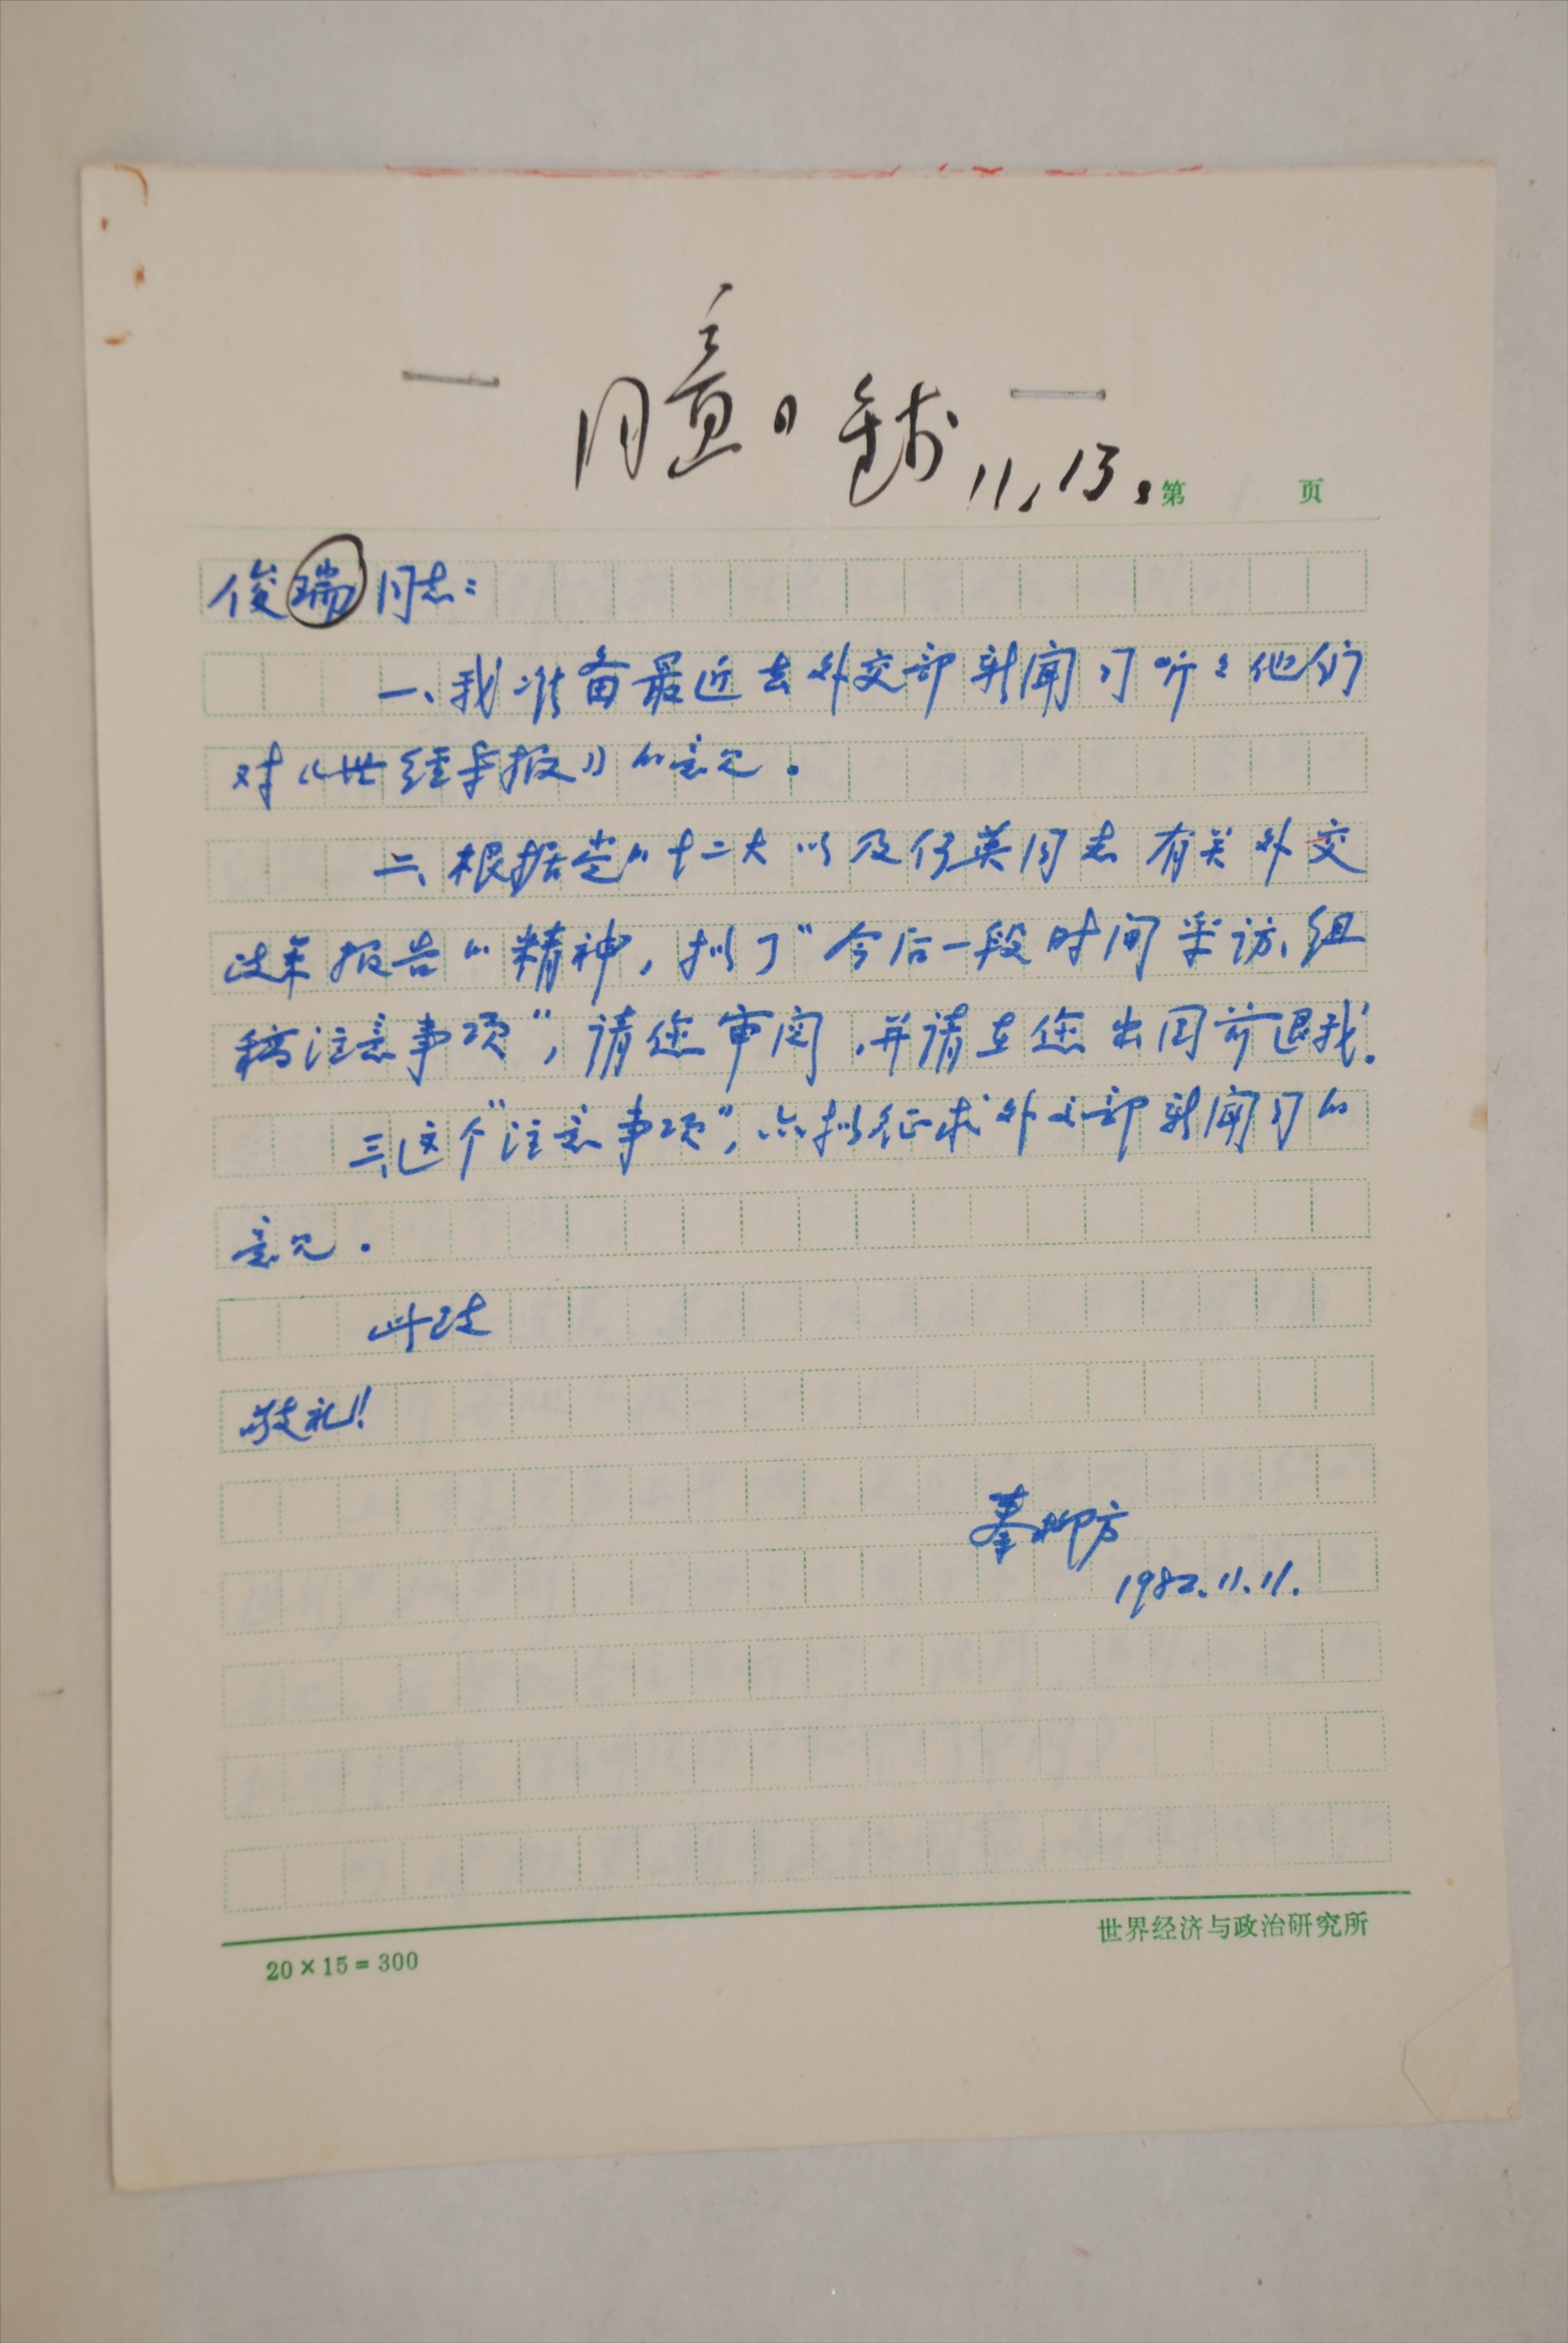 同意。钱 11，13。
第 页
俊瑞同志：
一、我准备最近去外交部新闻司听听他们
对《世经导报》的意见。
二、根据党的十二大以及仍英同志有关外交
政策报告的精神，拟了“今后一段时间采访、组
稿注意事项”，请您审阅，并请在您出国前退我。
三、这个“注意事项”，亦拟征求外交部新闻司的
意见。
此致
敬礼！
秦柳方
1982.11.11.
20×15=300
世界经济与政治研究所